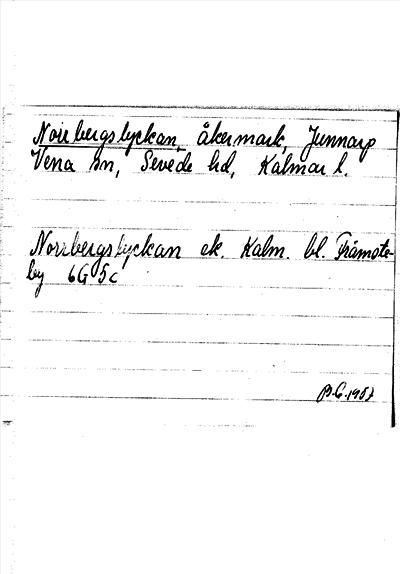 Norrbergslyckan, åkermark, Junnarp
Vena sn, Sevede hd, Kalmar l.
Norrbergslyckan ek. Kalm. bl. Tråmote-
by 6G 5c
B.G. 1957